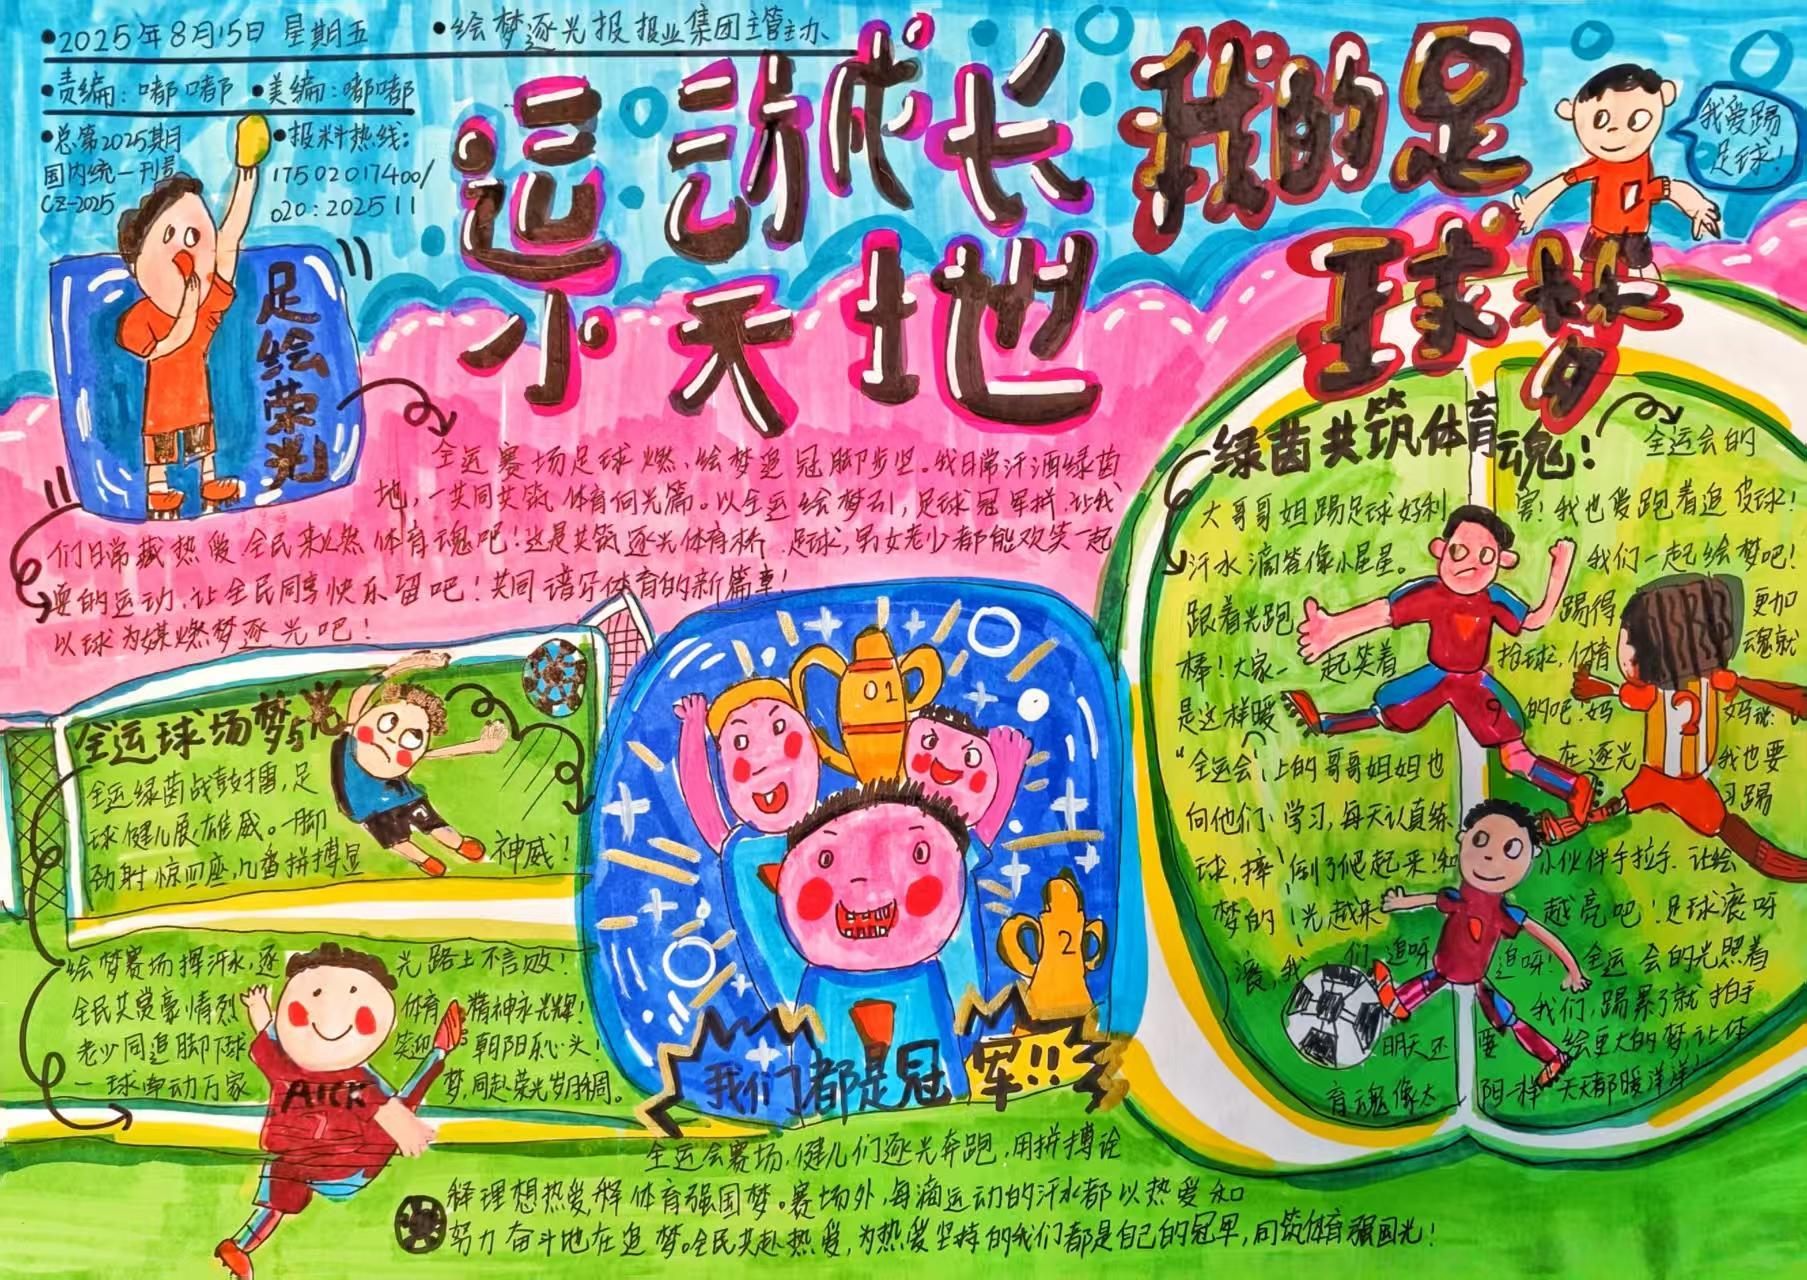 •2025年8月15日 星期五
•绘梦逐光报报业集团主管主办
•责编:嘟嘟 •美编:嘟嘟
•总第2025期月
国内统一刊号
CZ-2025
•报料热线:
17502017400/
020:202511
运动成长
小天地
我的足
球梦
我爱踢
足球!
足绘荣光
全运赛场足球燃、绘梦追冠脚步坚。我日常汗洒绿茵
地,一共同共筑体育何光篇。以全运绘梦引,足球冠军拼.让我
们日常藏热爱全民来燃体育魂吧!这是共筑逐光体育桥.足球,男女老少都能欢笑一起
耍的运动,让全民同享快乐留吧!共同谱写体育的新篇章!
以球为媒燃梦逐光吧!
全运球场梦与光
全运绿茵战鼓擂,足
球健儿展雄威。一脚
劲射惊四座,几番拼搏显
神威!
绘梦赛场挥汗水,逐光路上不言败!
全民共赏豪情烈 体育精神永光辉!
老少同追脚下球 笑迎朝阳沁心头!
一球牵动万家梦,同赴荣光岁月稠。
01
2
我们都是冠军!!
绿茵共筑体育魂!
全运会的
大哥哥姐踢足球好利害!我也爱跑着追皮球!
汗水滴答像小星星。我们一起绘梦吧!
跟着光跑 踢得更加
棒!大家一起笑着抢球,体育魂就
是这样暖的吧!妈妈说:
“全运会”上的哥哥姐姐也在逐光我也要
向他们学习,每天认真练习踢
球,摔倒了爬起来.和小伙伴手拉手.让绘
梦的光越来越亮吧!足球滚呀
滚,我们追呀追呀!全运会的光照着
我们,踢累了就拍手
明天还要绘更大的梦.让体
育魂像太阳一样天天都暖洋洋
9
2
全运会赛场,健儿们逐光奔跑,用拼搏论
释理想热爱,释体育强国梦。赛场外,每滴运动的汗水都以热爱和
努力奋斗地在追梦。全民共赴热爱,为热爱坚持的我们都是自己的冠军,同筑体育强国光!